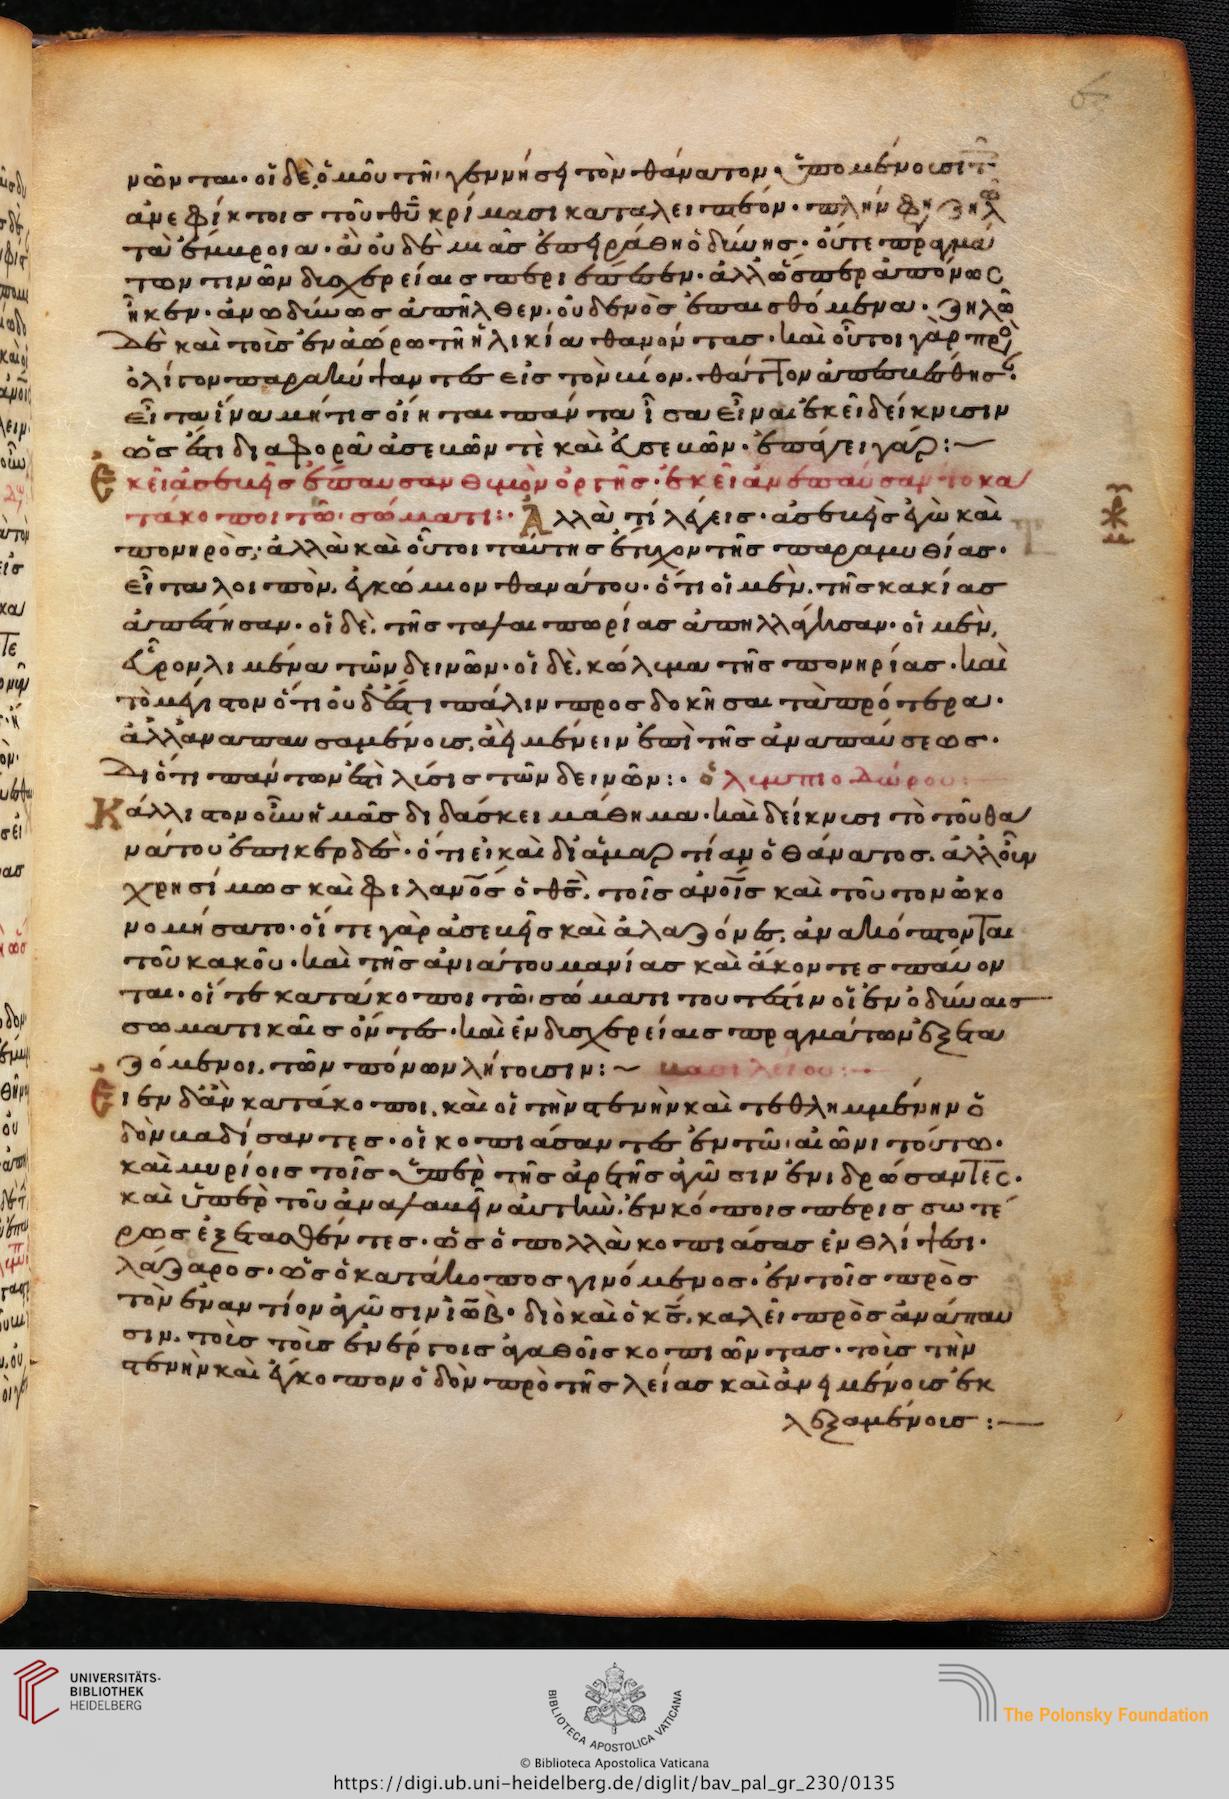 νῶνται· οἱ δὲ, ὁμοῦ τῇ γεννήσει τὸν θάνατον ὑπομένουσι τ
ἀνεφίκτοις τοῦ θῦ κρίμασι καταλειπτέον· πλὴν φη ζηλῶ
τὰ ἔμβροια· ἃ οὐδὲ μιᾶς ἐπειράθη ὀδύνης· οὔτε πραγμά
των τινῶν δυσχερείαις περιέπεσεν· ἀλλ' ὥσπερ ἀπόνως
ἧκεν· ἀνωδύνως ἀπῆλθεν· οὐδενὸς ἐπαισθόμενα· ζηλῶ
δὲ καὶ τοὺς ἐν ἀώρω τῇ ἡλικία θανόντας· καὶ οὗτοι γὰρ πρὸς
ὀλίγον παρακύψαντες εἰς τὸν βίον. θάττον ἀπεσκεύθησ
εἶτα ἵνα μή τις οἴηται πάντα ἴσα εἶναι ἐκεῖ δείκνυσιν
ὡς ἔστι διαφορὰ ἀσεβῶν τὲ καὶ εὐσεβῶν· ἐπάγει γάρ:~
Ἐκεῖ ἀσεβεῖς ἔπαυσαν θυμὸν ὀργῆς· ἐκεῖ ἀνεπαύσαντο κα
τάκοποι τῶ σώματι:· Ἀλλὰ τί λέγεις· ἀσεβὴς ἐγὼ καὶ
πονηρὸς· ἀλλὰ καὶ οὗτοι ταύτης ἔτυχον τῆς παραμυθίας·
εἶτα λοιπὸν. ἐγκώμιον θανάτου· ὅτι οἱ μὲν. τῆς κακίας
ἀπέστησαν· οἱ δὲ. τῆς ταλαιπωρίας ἀπηλλάγησαν· οἱ μὲν,
εὗρον λιμένα τῶν δεινῶν· οἱ δὲ. κώλυμα τῆς πονηρίας· καὶ
τὸ μέγιστον ὅτι οὐδ' ἔστι πάλιν προσδοκῆσαι τὰ πρότερα·
ἀλλ' ἀναπαυσαμένοις, ἀεὶ μένειν ἐπὶ τῆς ἀναπαύσεως·
Διότι πάντων ἐστὶ λύσις τῶν δεινῶν:· ὀλυμπιοδώρου:
Κάλλιστον οἶμαι ἡμᾶς διδάσκει μάθημα· καὶ δείκνυσι τὸ τοῦ θα
νάτου ἐπικερδὲς· ὅτι εἰ καὶ δι' ἁμαρτίαν ὁ θάνατος. ἀλλ' οὖν
χρησίμως καὶ φιλανος ὁ θς. τοῖς ανοις καὶ τοῦτον ὠκο
νομήσατο· οἵ τε γὰρ ἀσεβεῖς καὶ ἀλαζόνες, ἀνακόπτονται
τοῦ κακοῦ· καὶ τῆς ἀνιάτου μανίας καὶ ἄκοντες παύον
ται· οἵ τε κατάκοποι τῶ σώματι τουτέστιν οἱ ἐν ὀδύναις
σωματικαῖς ὄντες· καὶ ἐν δυσχερείαις πραγμάτων ἐξετα
ζόμενοι. τῶν πόνων λήγουσιν:~ βασιλείου:
Εἶεν δ' ἂν κατάκοποι. καὶ οἱ τὴν στενὴν καὶ τεθλημμένην ὁ
δὸν βαδίσαντες· οἱ κοπιάσαντες ἐν τῶ αἰῶνι τούτω·
καὶ μυρίοις τοῖς ὑπὲρ τῆς ἀρετῆς ἀγῶσιν ἐνιδρώσαντες·
καὶ ὑπὲρ τοῦ ἀναλαβεῖν αὐτὴν. ἐν κόποις περισσωτέ
ρως ἐξετασθέντες· ὡς ὁ πολλὰ κοπιάσας ἐν θλίψει·
λάζαρος· ὡς ὁ κατάκοπος γινόμενος· ἐν τοῖς πρὸς
τὸν ἐναντίον ἀγῶσιν ἰὼβ· διὸ καὶ ὁ κς. καλεῖ πρὸς ἀνάπαυ
σιν. τοὺς τοῖς ἐν ἔργοις ἀγαθοῖς κοπιῶντας· τοὺς τὴν
στενὴν καὶ ἔγκοπον ὁδὸν πρὸ τῆς λείας καὶ ἀνειμένοις ἐκ
λεξαμένοις:—
UNIVERSITÄTS-
BIBLIOTHEK
HEIDELBERG
BIBLIOTECA APOSTOLICA VATICANA
The Polonsky Foundation
© Biblioteca Apostolica Vaticana
https://digi.ub.uni-heidelberg.de/diglit/bav_pal_gr_230/0135